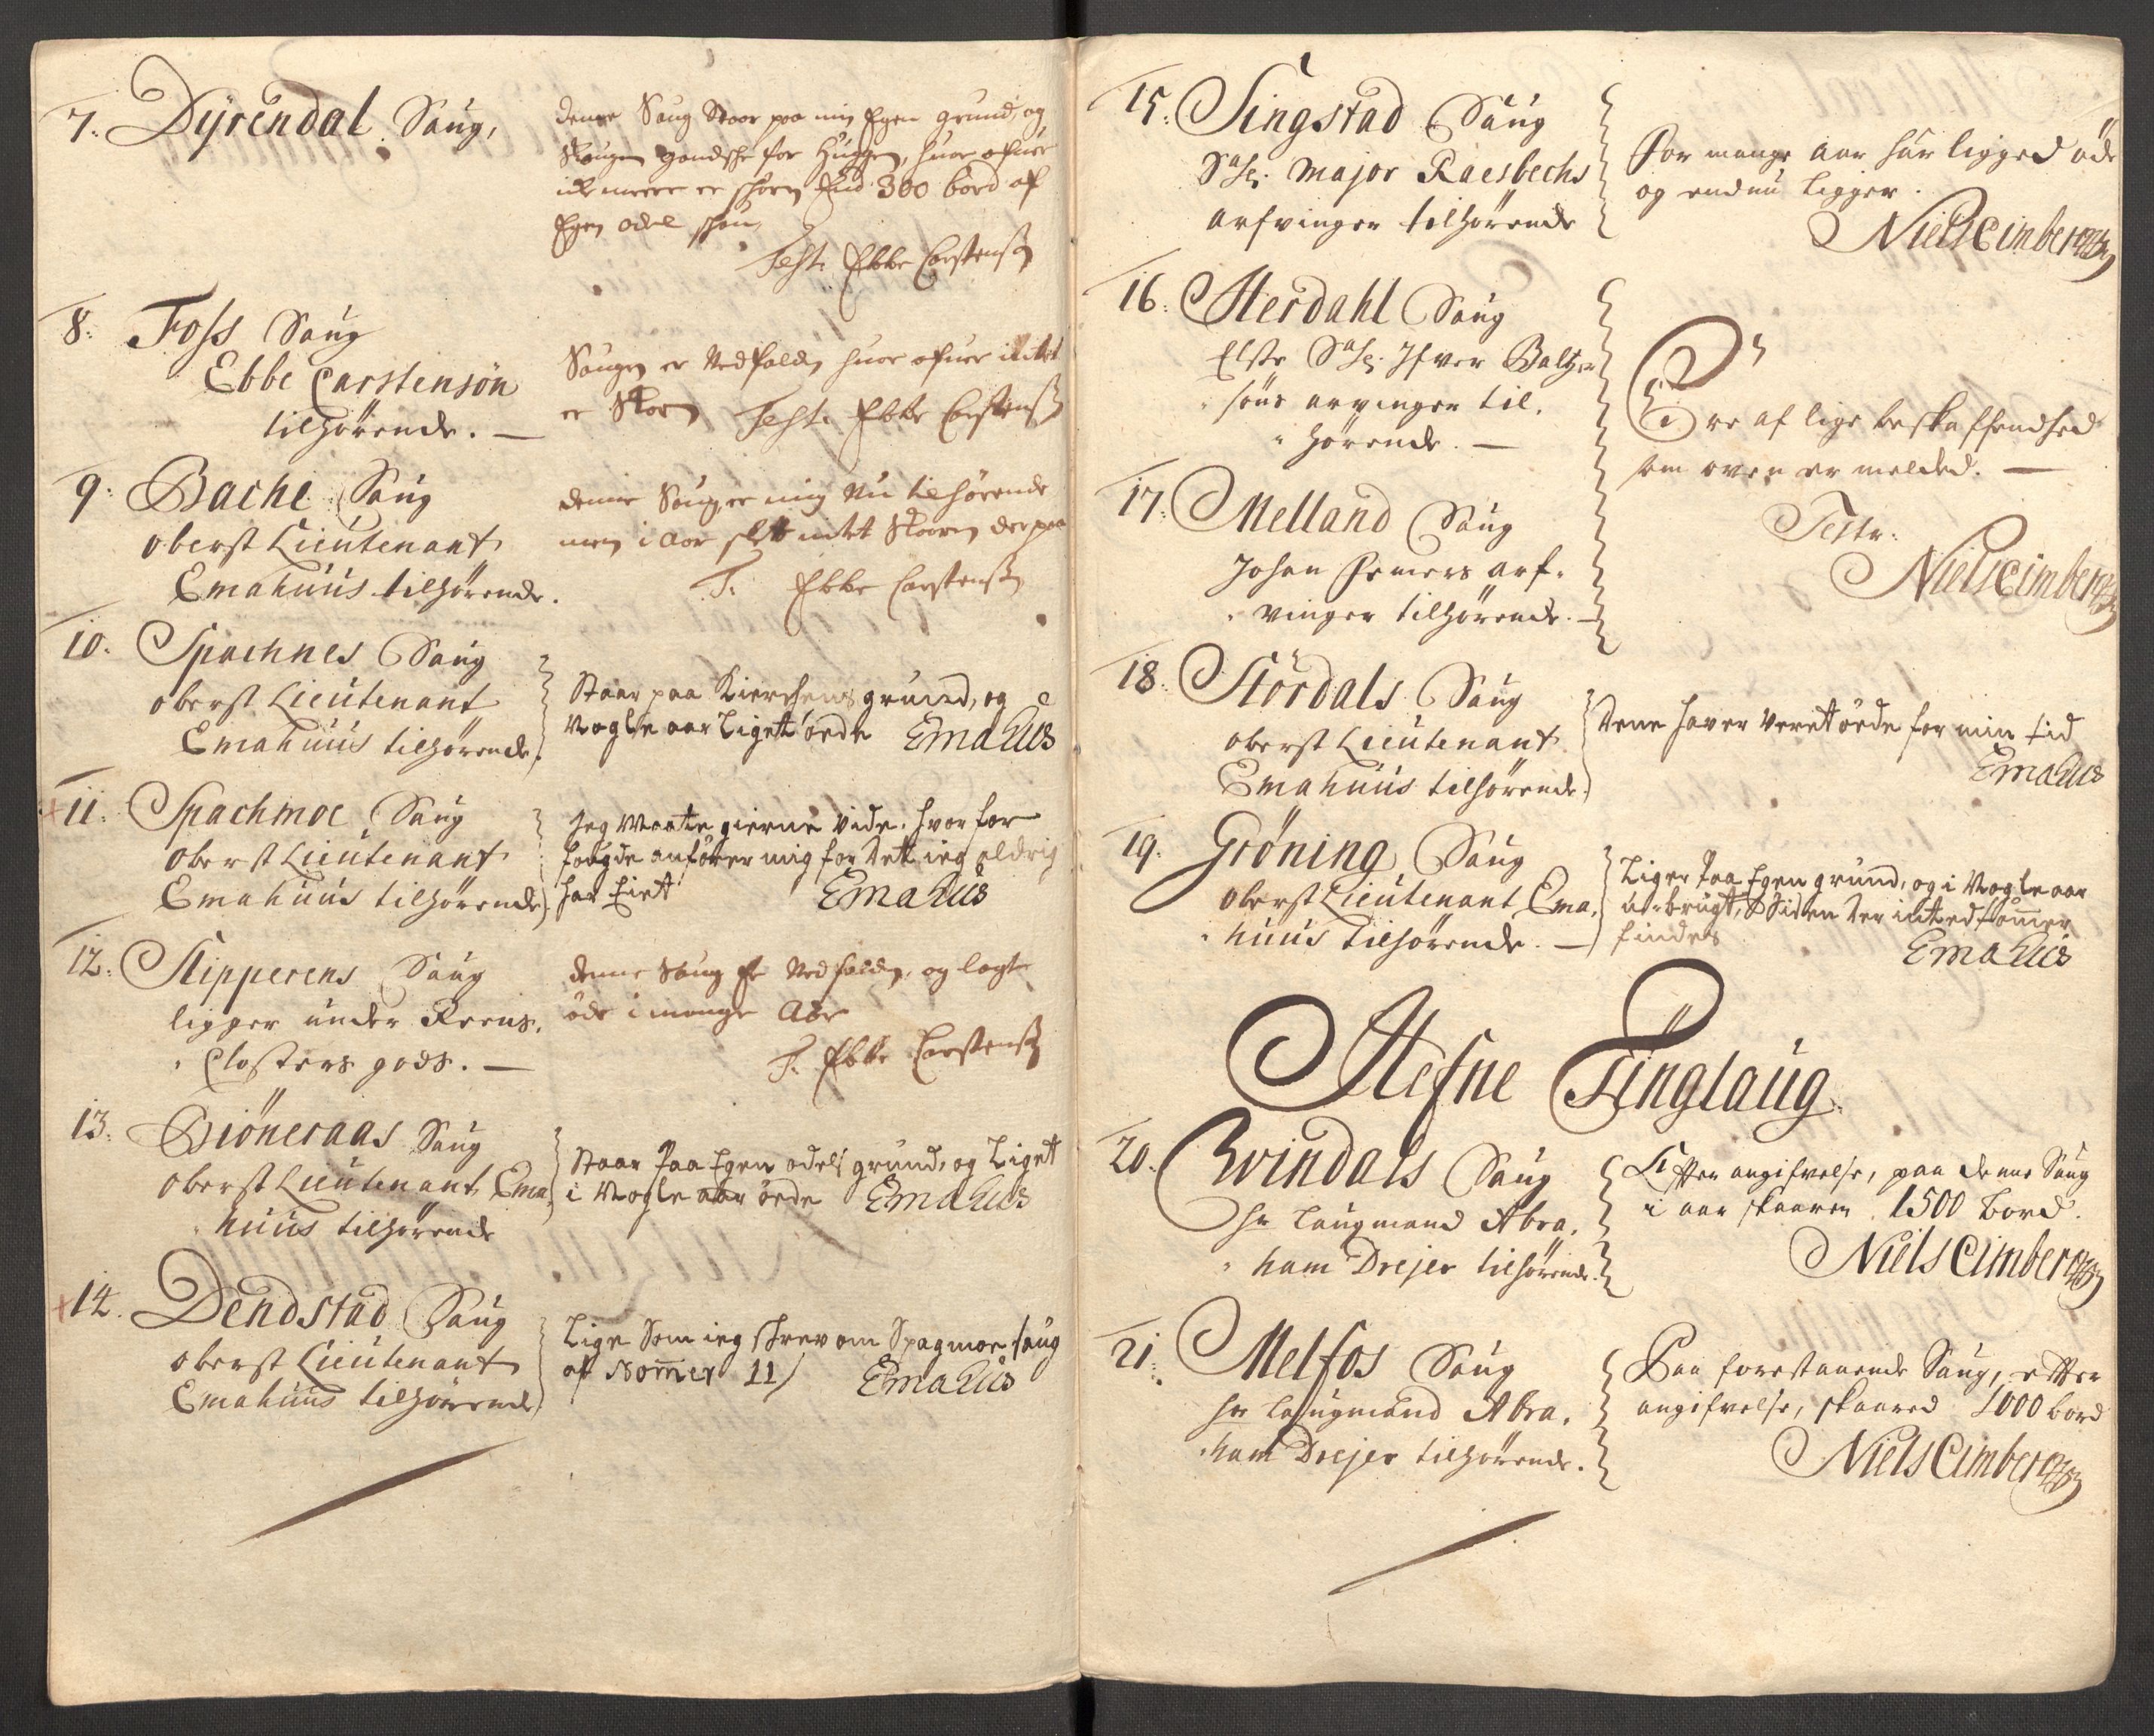 7. Dyrendal Saug,
denne Saug Staar paa min Egen grund, og
Skougen gandske for Huggen, huor ofuer
icke meere er skoren End 300 bord af
Egen odel skou
Test. Ebbe Carstensøn
8. Foss Saug
Ebbe Carstensön
tilhörende.
Saugen er Nedfalden huor ofuer intet
er Skoren Test. Ebbe Carstensøn
9. Bache Saug
oberst Lieutenant
Emahuus tilhörende.
denne Saug, er mig Nu tilhörende
men i Aar slet intet Skoren der paa
T. Ebbe Carstensøn
10. Spachnes Saug
oberst Lieutenant
Emahuus tilhörende.
Staar paa Kierchens grund, og
Nogle aar Liget öede Emahus
11. Spachmoe Saug
oberst Lieutenant
Emahuus tilhörende.
Jeg Maate gierne vide. hvor for
fougde anförer mig for dett ieg aldrig
har Eiet Emahus
12. Skipperens Saug
ligger under Reens,
Closters gods.
denne Saug er Nedfalden, og lagt
öde i mange Aar
T. Ebbe Carstensøn
13. Biöneraas Saug
oberst Lieutenant Ema,
huus tilhörende
Staar Paa Egen odels grund, og Liget
i Nogle aar öede Emahus
14. Dendstad Saug
oberst Lieutenant
Emahuus tilhörende
Lige Som ieg skrev om Spagmoe saug
af Nomer 11/ Emahus
15. Singstad Saug
Sal. Major Raesbechs
arfvinger tilhörende
For mange aar har ligged öde
og endnu ligger.
Niels Cimber
16. Sterdahl Saug
Elste Sal. Ifver Baltzer
söns arvinger til,
hörende.
17. Melland Saug
Johan Hemers arf,
vinger tilhörende.
Ere af lige beskaffendhed
som oven er melded.
Test:
Niels Cimber
18. Stördals Saug
oberst Lieutenant
Emahuus tilhörende.
Dene haver veret öede for min tid
Emahus
19. Gröning Saug
oberst Lieutenant Ema,
huus tilhörende.
Liger Paa Egen grund, og i Nogle aar
u-brugt, Siden der inted tömer
findes
Emahus
Stefne Tinglaug.
20. Qvindals Saug
Hr Laugmand Abra,
ham Drejer tilhörende.
Efter angifvelse, paa denne Saug
i aar skaaren 1500 bord.
Niels Cimber
21. Melfos Saug
Hr Laugmand Abra,
ham Drejer tilhörende.
Paa forestaaende Saug, efter
angifvelse, skaared 1000 bord
Niels Cimber